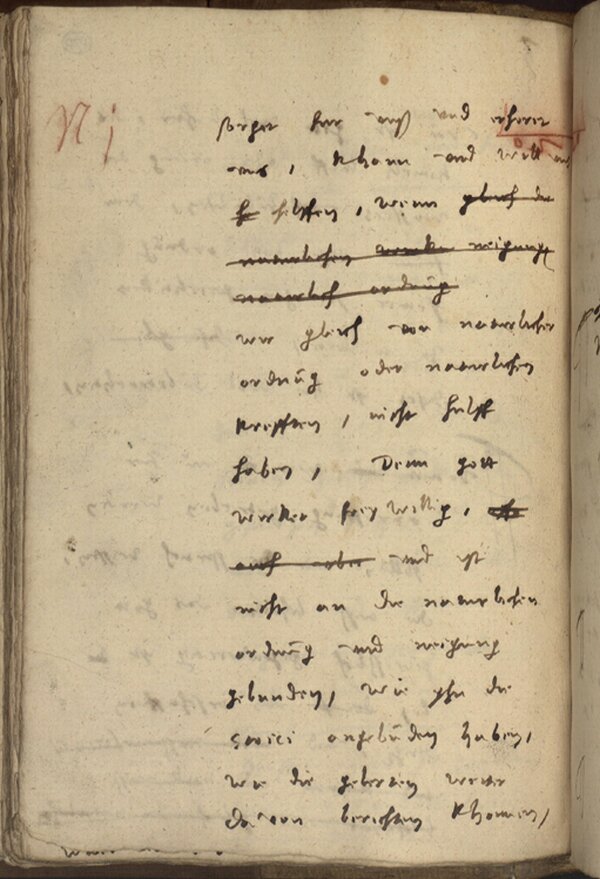 N j
sorget fur uns und erhoret
uns, khann und will uns
helffen, wenn gleich die
naturlichen neigung
naturlich ordnūg
wir gleich von naturlicher
ordnūg oder naturlichen
krefften, nicht hulff
haben, Denn gott
wirket frey willig,
auch aber und ist
nicht an die naturlichen
ordnūg und neigung
gebunden, wie yhn die
Stoici angebūden haben,
wie die gelerten weiter
davon berichten khonnen,